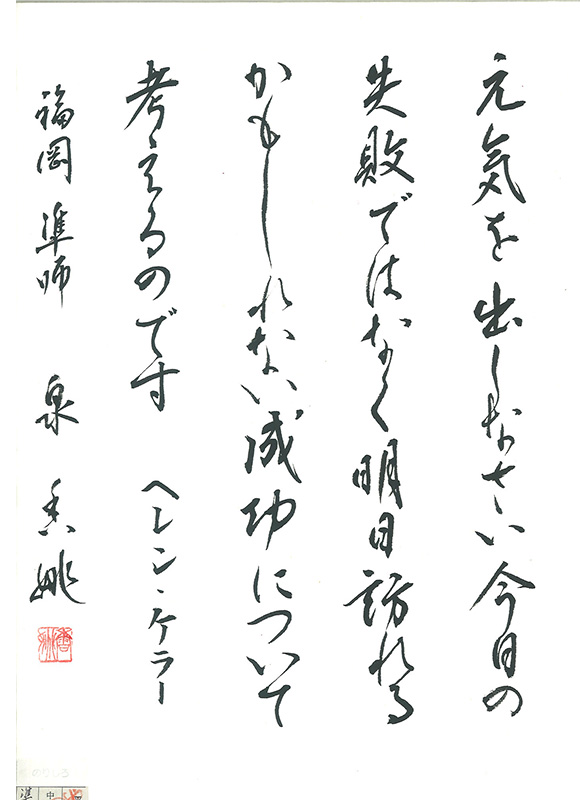 元気を出しなさい今日の
失敗ではなく明日訪れる
かもしれない成功について
考えるのです ヘレン・ケラー
福岡 準師 泉 香姚
のりしろ
準 中